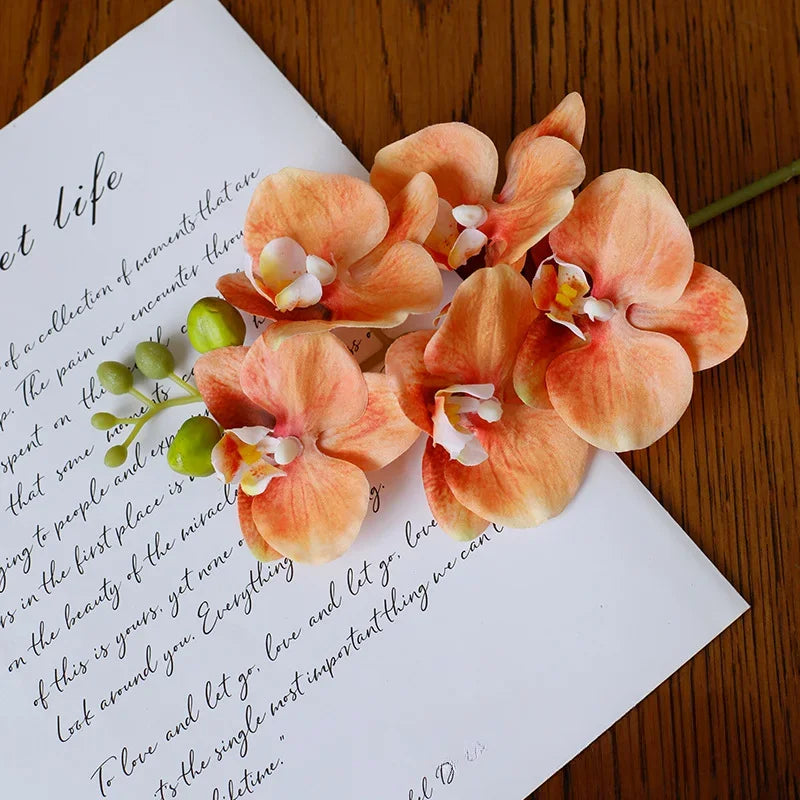 et life
of a collection of moments that are
up. The pain we encounter throu
spent on the
that some moments
ng to people and exp
rs in the first place is
on the beauty of the miracle
of this is yours, yet none o
Look around you. Everything
To love and let go, love and let go, love
it's the single most important thing we can't
lifetime."
el D